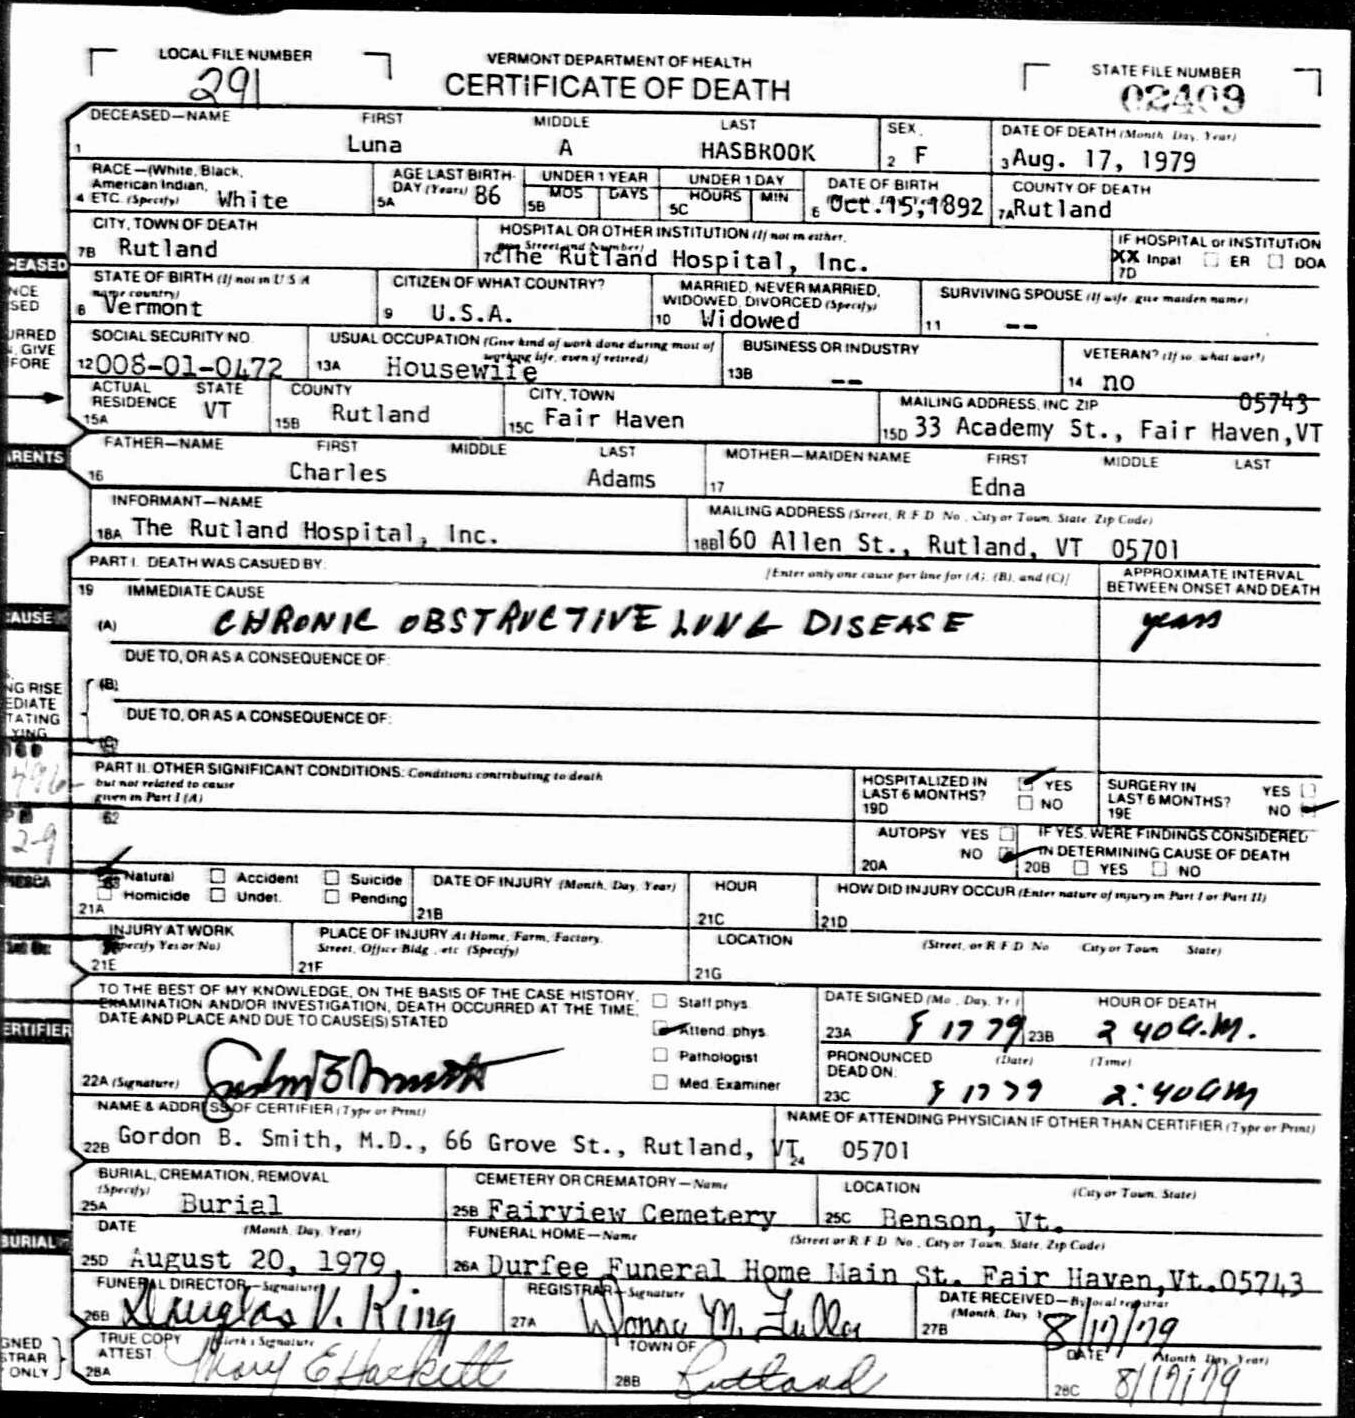 LOCAL FILE NUMBER
291
VERMONT DEPARTMENT OF HEALTH
CERTIFICATE OF DEATH
STATE FILE NUMBER
02409
DECEASED—NAME FIRST MIDDLE LAST
1 Luna A HASBROOK
SEX
2 F
DATE OF DEATH (Month, Day, Year)
3 Aug. 17, 1979
RACE—(White, Black,
American Indian,
4 ETC. (Specify) White
AGE LAST BIRTH-
DAY (Years)
5A 86
UNDER 1 YEAR
MOS DAYS
5B
UNDER 1 DAY
HOURS MIN
5C
DATE OF BIRTH
6 Oct. 15, 1892
COUNTY OF DEATH
7A Rutland
CITY, TOWN OF DEATH
7B Rutland
HOSPITAL OR OTHER INSTITUTION (If not in either,
Street and Number)
7C The Rutland Hospital, Inc.
IF HOSPITAL or INSTITUTION
XX Inpat ER DOA
7D
STATE OF BIRTH (If not in U S A
name country)
8 Vermont
CITIZEN OF WHAT COUNTRY?
9 U.S.A.
MARRIED, NEVER MARRIED,
WIDOWED, DIVORCED (Specify)
10 Widowed
SURVIVING SPOUSE (If wife, give maiden name)
11 --
SOCIAL SECURITY NO.
12 008-01-0472
USUAL OCCUPATION (Give kind of work done during most of
working life, even if retired)
13A Housewife
BUSINESS OR INDUSTRY
13B --
VETERAN? (If so, what war?)
14 no
ACTUAL STATE
RESIDENCE VT
15A
COUNTY
15B Rutland
CITY, TOWN
15C Fair Haven
MAILING ADDRESS, INC ZIP 05743
15D 33 Academy St., Fair Haven,VT
FATHER—NAME FIRST MIDDLE LAST
16 Charles Adams
MOTHER—MAIDEN NAME FIRST MIDDLE LAST
17 Edna
INFORMANT—NAME
18A The Rutland Hospital, Inc.
MAILING ADDRESS (Street, R F D No., City or Town, State, Zip Code)
18B 160 Allen St., Rutland, VT 05701
PART I. DEATH WAS CASUED BY: [Enter only one cause per line for (A), (B), and (C)]
APPROXIMATE INTERVAL
BETWEEN ONSET AND DEATH
19 IMMEDIATE CAUSE
(A) CHRONIC OBSTRUCTIVE LUNG DISEASE years
DUE TO, OR AS A CONSEQUENCE OF:
(B)
DUE TO, OR AS A CONSEQUENCE OF:
PART II. OTHER SIGNIFICANT CONDITIONS: Conditions contributing to death
but not related to cause
given in Part I (A)
HOSPITALIZED IN YES
LAST 6 MONTHS? NO
19D
SURGERY IN YES
LAST 6 MONTHS? NO
19E
AUTOPSY YES
NO
20A
IF YES, WERE FINDINGS CONSIDERED
IN DETERMINING CAUSE OF DEATH
20B YES NO
Natural Accident Suicide
Homicide Undet. Pending
21A
DATE OF INJURY (Month, Day, Year)
21B
HOUR
21C
HOW DID INJURY OCCUR (Enter nature of injury in Part I or Part II)
21D
INJURY AT WORK
(Specify Yes or No)
21E
PLACE OF INJURY At Home, Farm, Factory,
Street, Office Bldg., etc (Specify)
21F
LOCATION (Street, or R F D No City or Town State)
21G
TO THE BEST OF MY KNOWLEDGE, ON THE BASIS OF THE CASE HISTORY,
EXAMINATION AND/OR INVESTIGATION, DEATH OCCURRED AT THE TIME,
DATE AND PLACE AND DUE TO CAUSE(S) STATED
Staff phys.
Attend. phys.
Pathologist
Med. Examiner
22A (Signature)
DATE SIGNED (Mo., Day, Yr.)
23A 8 17 79
HOUR OF DEATH
23B 2 40 A.M.
PRONOUNCED (Date) (Time)
DEAD ON:
23C 8 17 79 2:40 AM
NAME & ADDRESS OF CERTIFIER (Type or Print)
22B Gordon B. Smith, M.D., 66 Grove St., Rutland, VT 05701
NAME OF ATTENDING PHYSICIAN IF OTHER THAN CERTIFIER (Type or Print)
24
BURIAL, CREMATION, REMOVAL
(Specify)
25A Burial
CEMETERY OR CREMATORY—Name
25B Fairview Cemetery
LOCATION (City or Town, State)
25C Benson, Vt.
DATE (Month, Day, Year)
25D August 20, 1979
FUNERAL HOME—Name (Street or R F D No., City or Town, State, Zip Code)
26A Durfee Funeral Home Main St. Fair Haven,Vt.05743
FUNERAL DIRECTOR—Signature
26B Douglas V. King
REGISTRAR—Signature
27A Donna M. Fuller
DATE RECEIVED—By local registrar
(Month, Day,
27B 8/17/79
TRUE COPY Clerk's Signature
ATTEST
28A Mary E Hackett
TOWN OF
28B Rutland
DATE (Month, Day, Year)
28C 8/17/79
CEASED
NCE
SED
URRED
GIVE
FORE
RENTS
CAUSE
NG RISE
EDIATE
TATING
YING
ERTIFIER
BURIAL
GNED
STRAR
ONLY